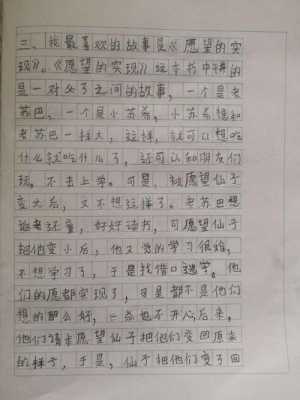 三、我最喜欢的故事是《愿望的实
现》。《愿望的实现》这本书中讲的
是一对父子之间的故事，一个是老
苏巴，一个是小苏希。小苏希想和
老苏巴一样大，这样，就可以想吃
什么就吃什么了，还可以和朋友们
玩。不去上学。可是，被愿望仙子
变大后，又不想这样了。老苏巴想
返老还童，好好读书，可愿望仙子
把他变小后，他又觉的学习很难，
不想学习了，于是找借口逃学。他
们的愿都实现了，可是都不是他们
想的那么好，一点也不开心后来，
他们请求愿望仙子把他们变回原来
的样子，于是，仙子把他们变了回